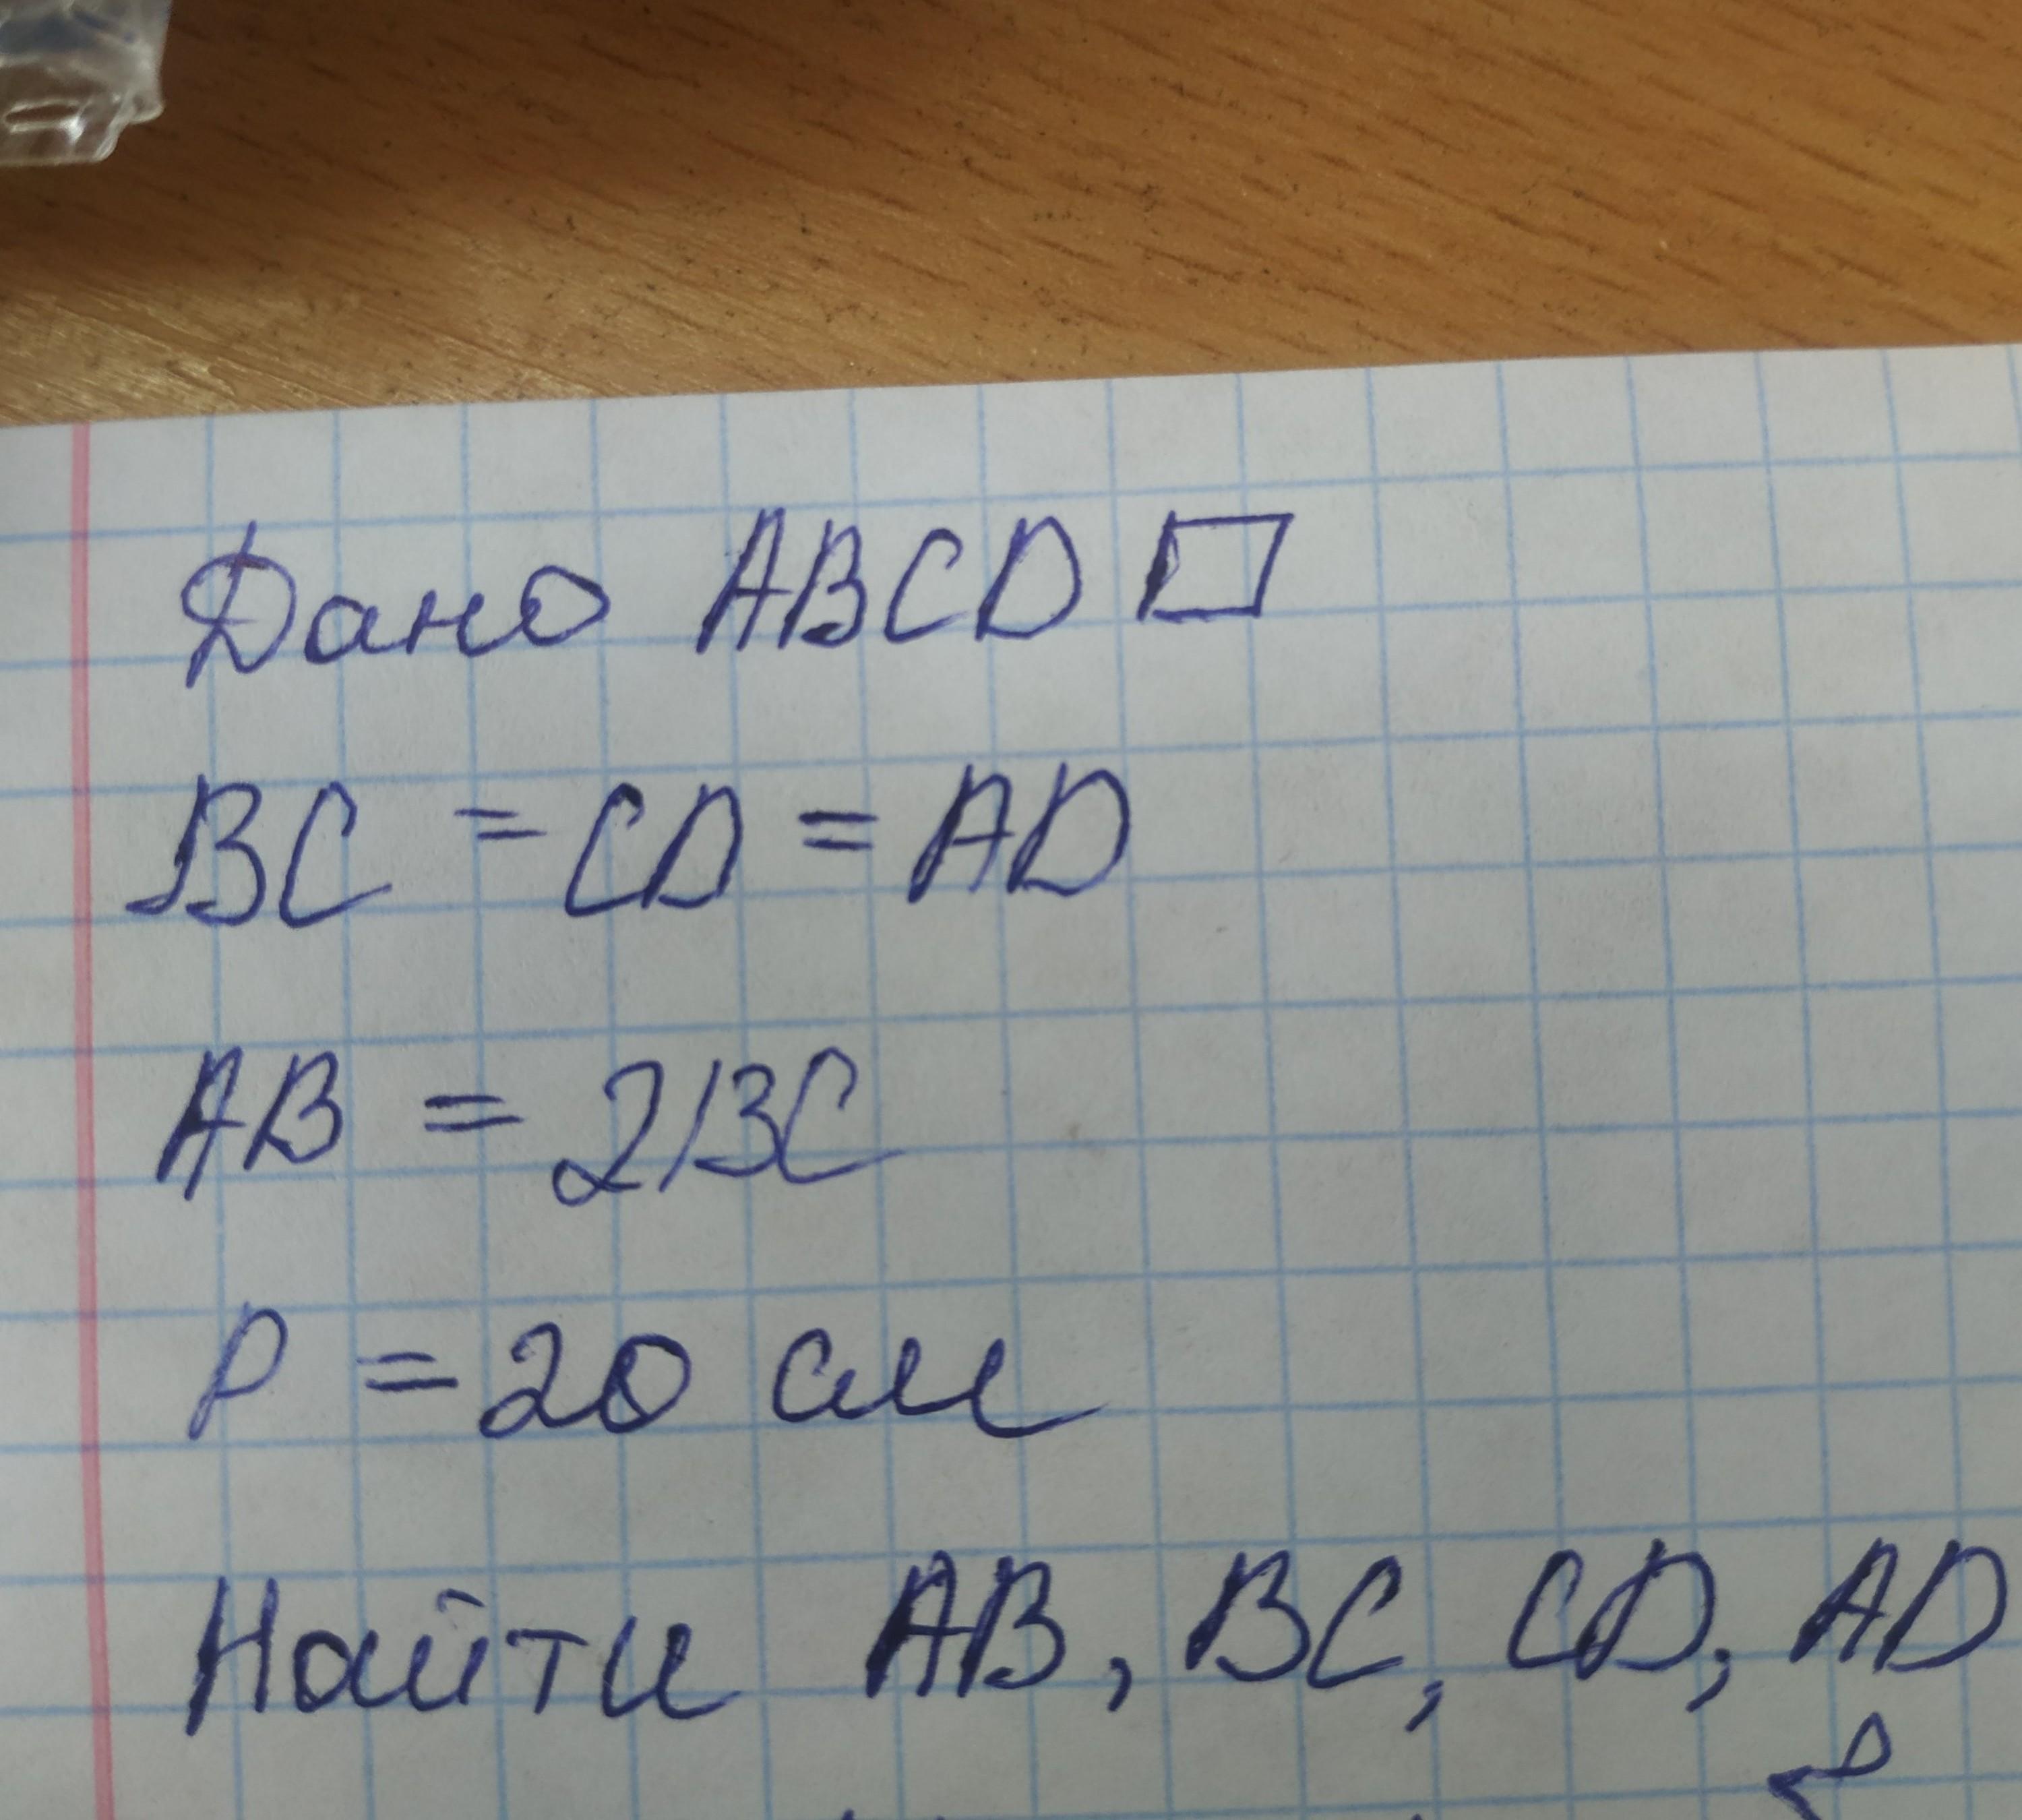 Дано ABCD
BC = CD = AD
AB = 2BC
P = 20 см
Найти AB, BC, CD, AD